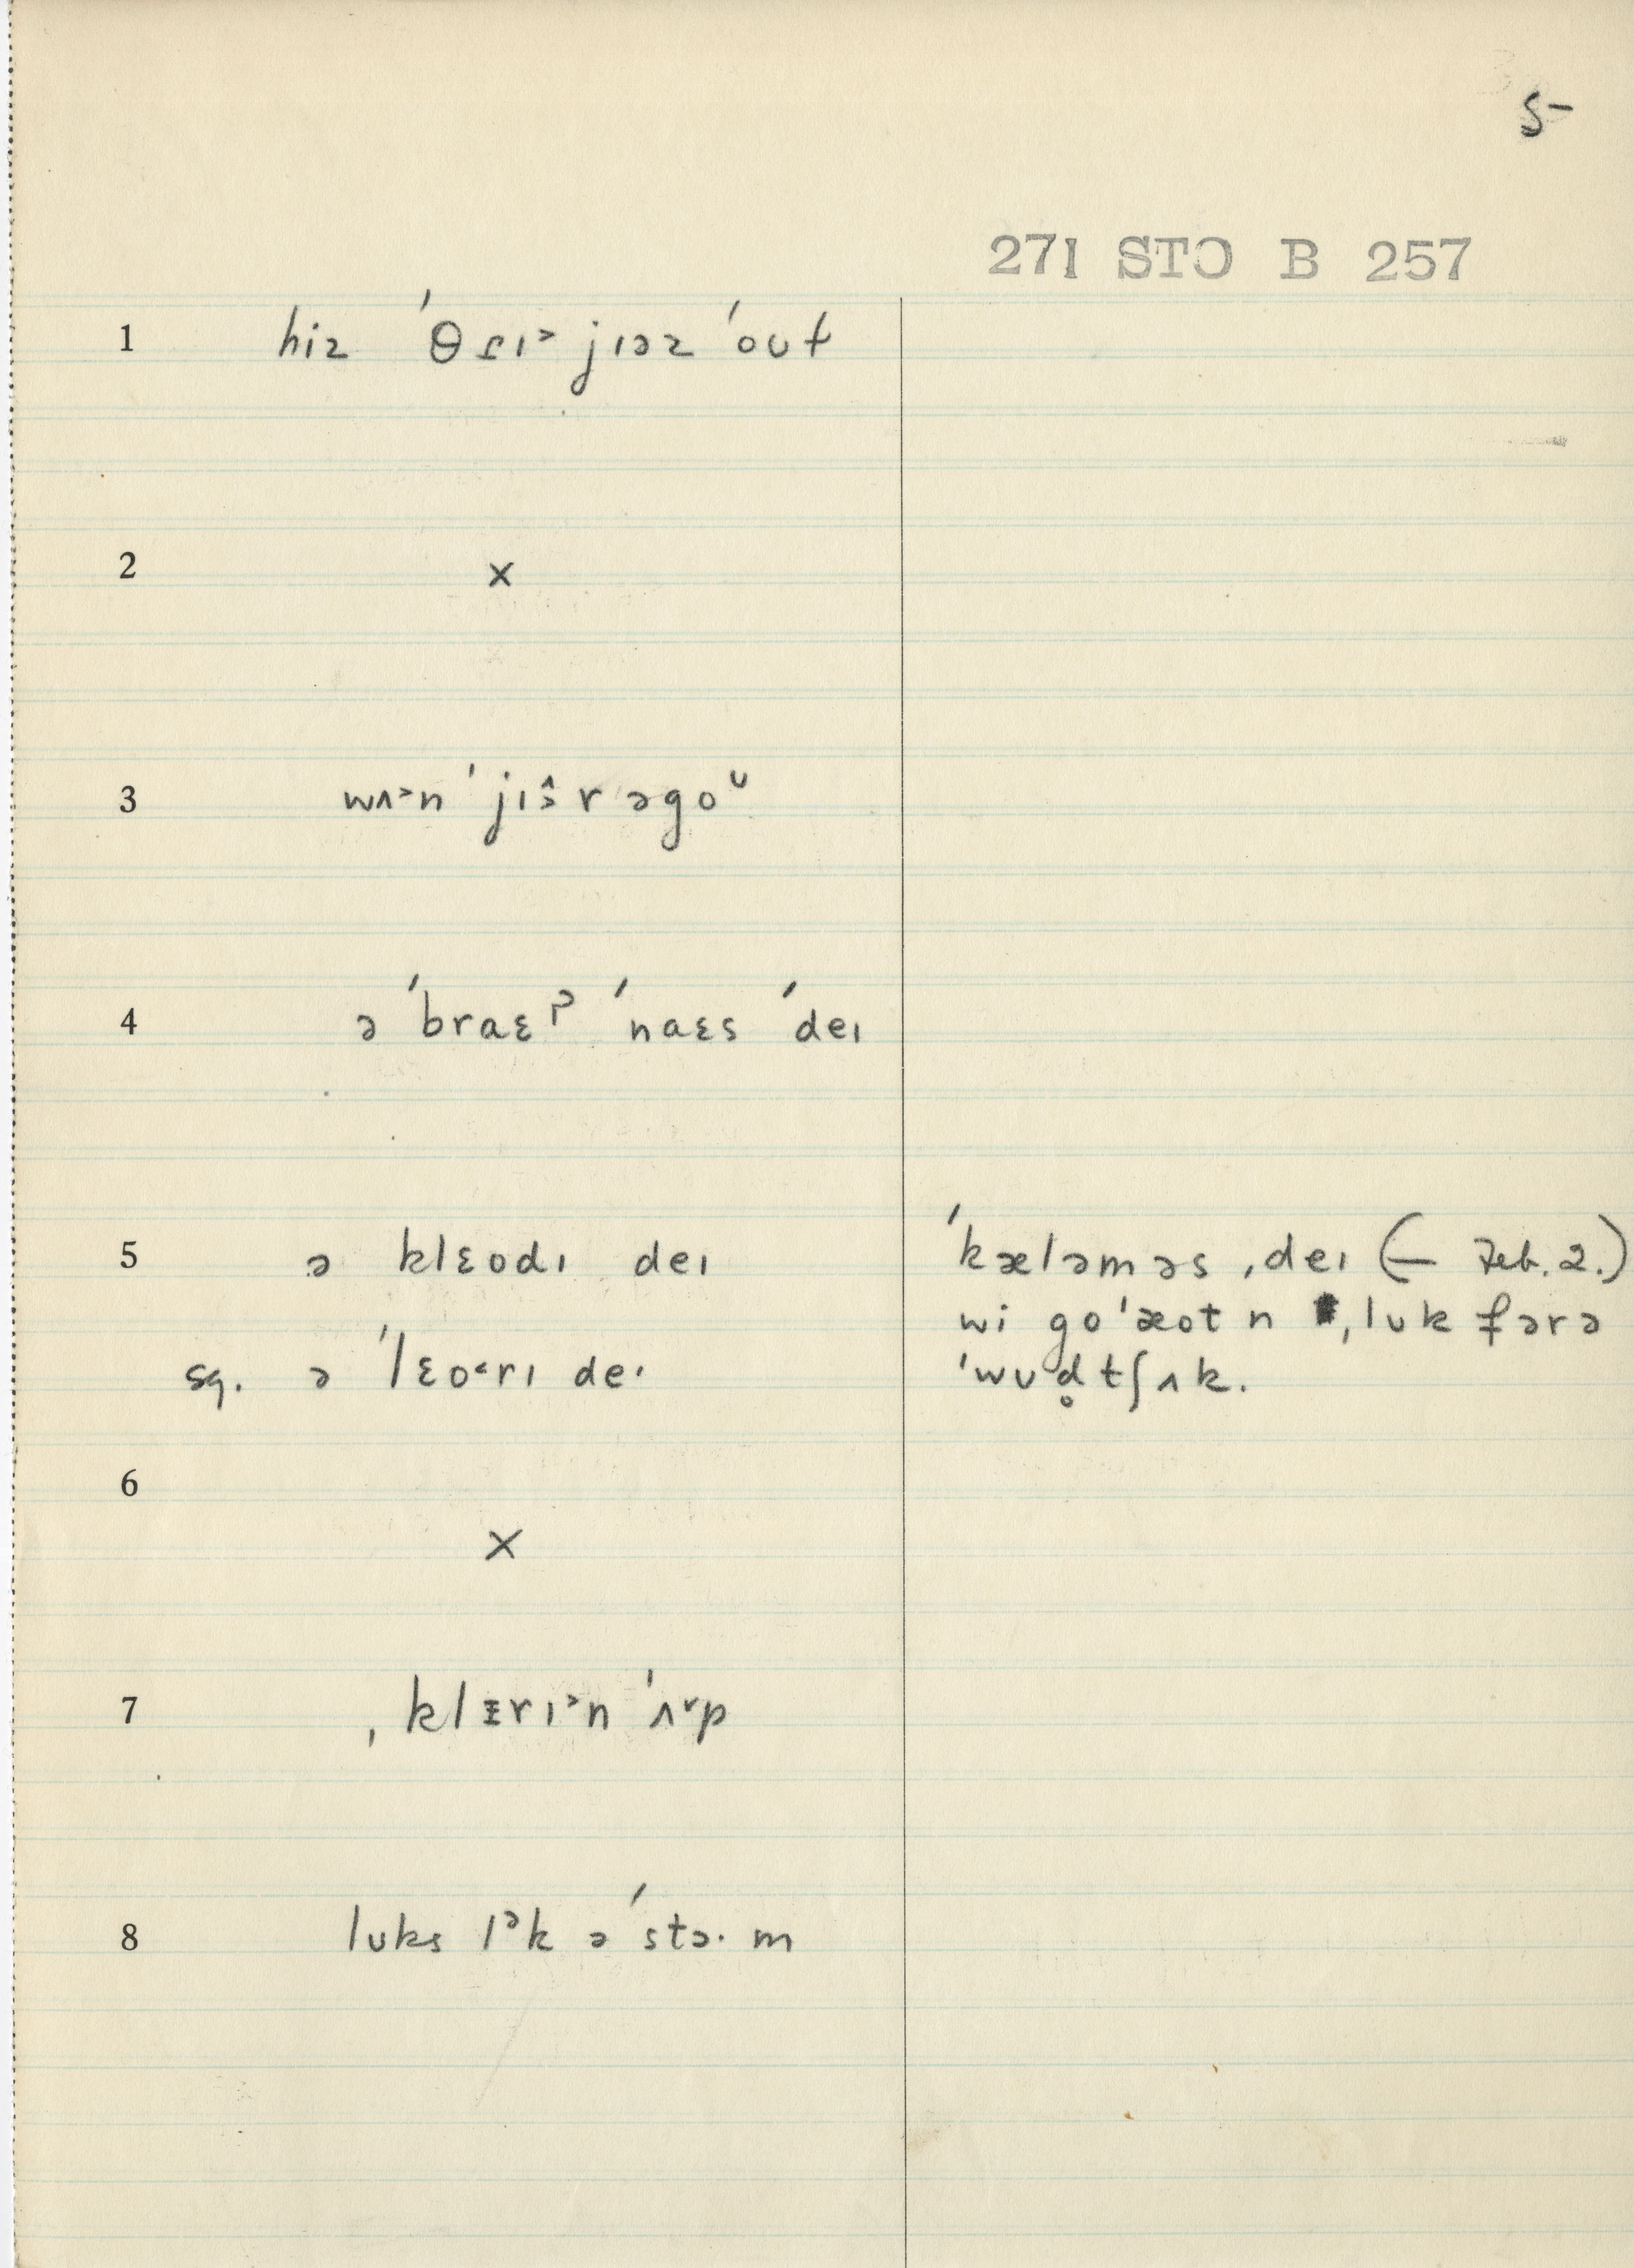 5
271 STO B 257
1 hiz ˈθɾɪ˃ jɪəz ˈoʊt
2 x
3 wʌ˃n ˈjɪə̂r əgoᵘ
4 ə ˈbraɛᵖ ˈnaɛs ˈdeɪ
5 ə klɛodɪ deɪ
sq. ə ˈlɛo˂rɪ deɪ
ˈkæləməs ˌdeɪ (— Feb. 2.)
wi goˈæot n ˌlʊk fərə
ˈwʊd̥tʃʌk.
6 x
7 ˌklɪrɪ˃n ˈʌ˅p
8 lʊks lᵊk ə ˈstɔ· m